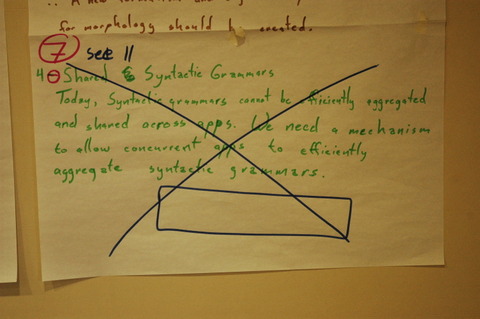 for morphology should be created.
7 see 11
4 Shared & Syntactic Grammars
Today, Syntactic grammars cannot be efficiently aggregated
and shared across apps. We need a mechanism
to allow concurrent apps to efficiently
aggregate syntactic grammars.